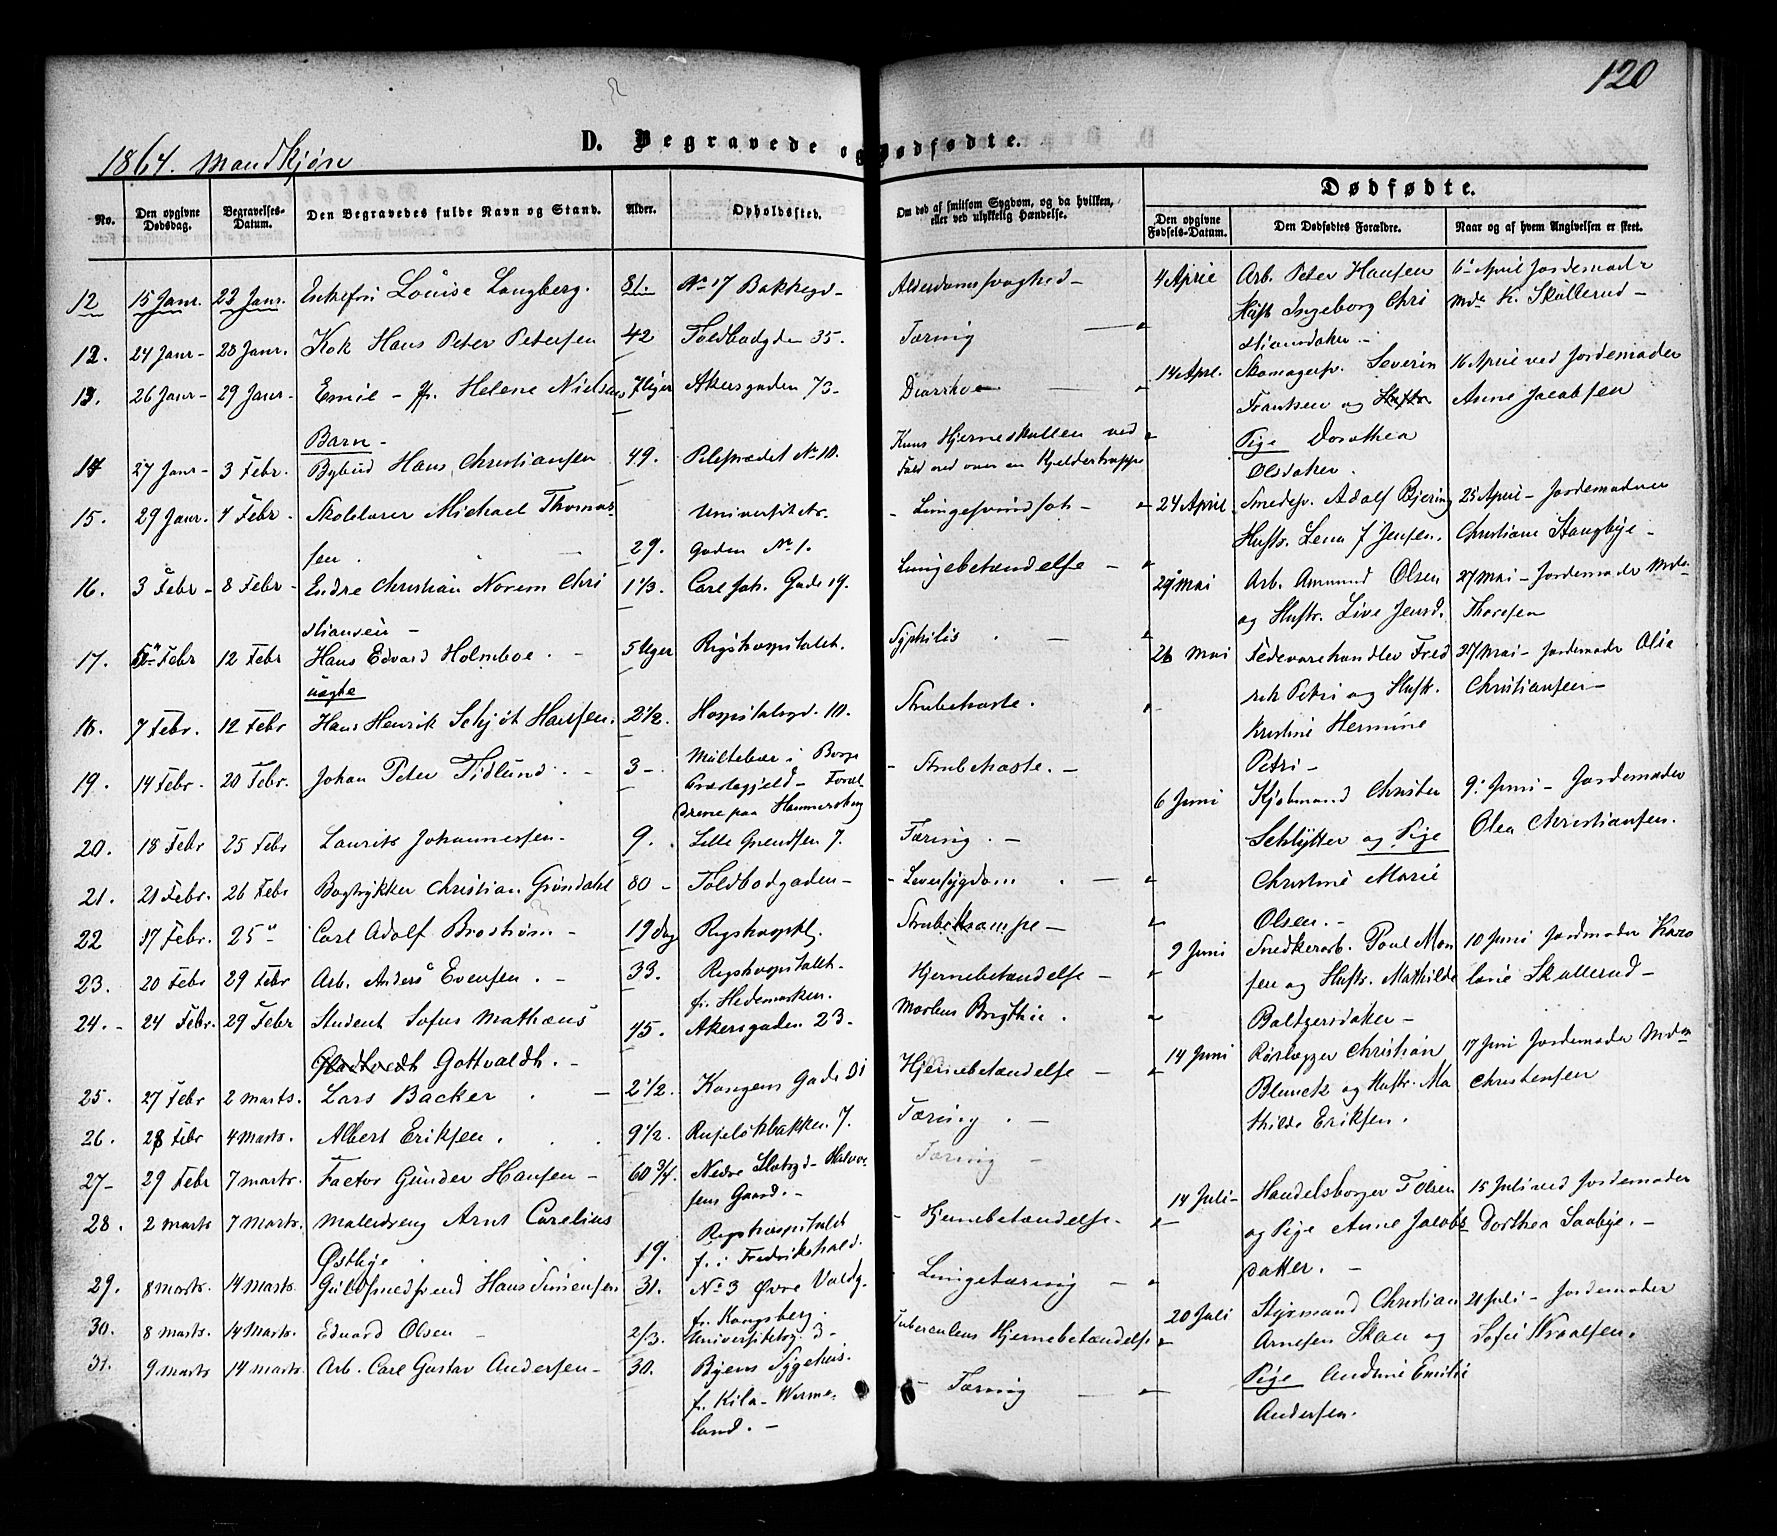 120
1864. Mandkjøn
D. Begravede og Dødfødte.
No.
Den opgivne Dødsdag.
Begravelses-Datum.
Den Begravedes fulde Navn og Stand.
Alder.
Opholdssted.
Om død af smitsom Sygdom, og da hvilken, eller ved ulykkelig Hændelse.
Dødfødte.
Den opgivne Fødsels-Datum.
Den Dødfødtes Forældre.
Naar og af hvem Angivelsen er skeet.
12 15 Janr. 23 Janr. Enkefru Louise Langberg. 81. No 17 Bakkegd- Alderdomssvaghed -
12. 24 Janr - 28 Janr. Kok Hans Peter Petersen 42 Toldbodgden 35. Tæring
13. 26 Janr - 29 Janr - Emil - fr. Helene Nielsens 7 Uger Akersgaden 73 - Diarrhoe
Barn -
14 27 Janr - 3 Febr. Bybud Hans Christiansen 49. Pilestrædet No 10. Knus Hjerneskallen ved
Fald ned over en Kjeldertrappe
15. 29 Janr. 4 Febr - Skolelærer Michael Thomas- Universitets- - Lungesvindsot -
sen. 29. gaden No 1.
16. 3 Febr - 8 Febr - Endre Christian Norem Chri 1 1/3. Carl Joh. Gade 19. Lungebetændelse -
stiansen -
17. 5 Febr 12 Febr Hans Edvard Holmboe. - 5 Uger Rigshospitalet. Syphilis -
uægte
18. 7 Febr. 12 Febr Hans Henrik Schjøt Hansen. 2 1/2. Hospitalsgd. 10. Strubehoste.
19. 14 Febr. 20 Febr. Johan Peter Tidlund. - 3 - Multebær i Borge - Strubehoste. -
Præstegjeld - Foræl-
drene paa Hammersborg
20. 18 Febr 25 Febr Laurits Johannessen - 9. Lille Grendsen 7. Tæring. -
21. 21 Febr. 26 Febr Bogtrykker Christian Grøndahl 80 - Toldbodgaden - - Leversygdom. -
22 17 Febr. 25 " Carl Adolf Brostrøm - 19 dag Rigshosptl. Strubekrampe -
23. 20 Febr 29 Febr Arb. Anders Evensen. - 33. Rigshospitalet. Hjernebetændelse -
fr. Hedemarken.
24. - 24 Febr. 29 Febr Student Sofus Mathæus 45. Akersgaden 23 - Morbus Brigthii.
Gottvaldt. -
25. 27 Febr 2 Marts. Lars Backer. - 2 1/2. Kongens Gade 21 Hjernebetændelse -
26. 28 Febr 4 Marts. Albert Eriksen. 9 1/2. Ruseløkbakken 7. Tæring. -
27 - 29 Febr 7 Marts. Factor Gunder Hansen - 60 3/4. Nedre Slotsgd - Halvor- Tæring -
sens Gaard. -
28. 2 Marts 7 Marts. Malerdreng Arnt Carelius Rigshospitalet - Hjernebetændelse -
Østbye. 19. f. i Fredrikshald
29. 8 Marts. 14 Marts. Guldsmedsvend Hans Simensen 31. No 3 Øvre Voldg. - Lungetæring -
fr. Kongsberg.
30. 8 Marts. 14 Marts. Edvard Olsen - 2/3. Universitetsg. 3 - Tuberculeus Hjernebetændelse
31. 9 Marts 14 Marts. Arb. Carl Gustav Andersen - 30. Byens Sygehus. - Tæring -
f. Kila - Werme-
land. -
4 April Arb. Peter Hansen 6 April Jordemoder
Hust. Ingeborg Chri Mda K. Skullerud -
stiansdater -
14 Apri. Skomagersv. Severin 16 April ved Jordemoder
Frantsen og Hustr. Anne Jacobsen
Pige Dorothea
Olsdater.
24 April Smedsv. Adolf Bjering 25 April - Jordemoder
Hustr. Lena f Jensen. Christiane Stangbye -
29 Mai Arb. Amund Olsen 27 Mai - Jordemoder Mda.
og Hustr. Live Jensd. Thoresen
26 Mai Fedevarehandler Fred 27 Mai - Jordemoder Olia
rik Petri og Hustr. Christiansen -
Kristine Hermine
Petri -
6 Juni Kjøbmand Christer 9. Juni - Jordemoder
Schlytter og Pige Olea Christiansen.
Christine Marie
Olsen. -
9 Juni Snedkerarb. Poul Mon 10 Juni Jordmoder Karo
sen og Hustr. Mathilde line Skullerud -
Baltzersdater -
14 Juni Rørlægger Christian 17 Juni Jordemoder Mdm
Blunck og Hustr. Ma Christensen
thilde Eriksen.
14 Juli - Handelsborger T Olsen 15 Juli ved Jordemoder
og Pige Anne Jacobs Dorthea Saabye. -
datter. -
20 Juli Styrmand Christian 21 Juli - Jordemoder
Arnesen Skau og Sofie Kraalsen.
Pige Andrine Emilie
Andersen.